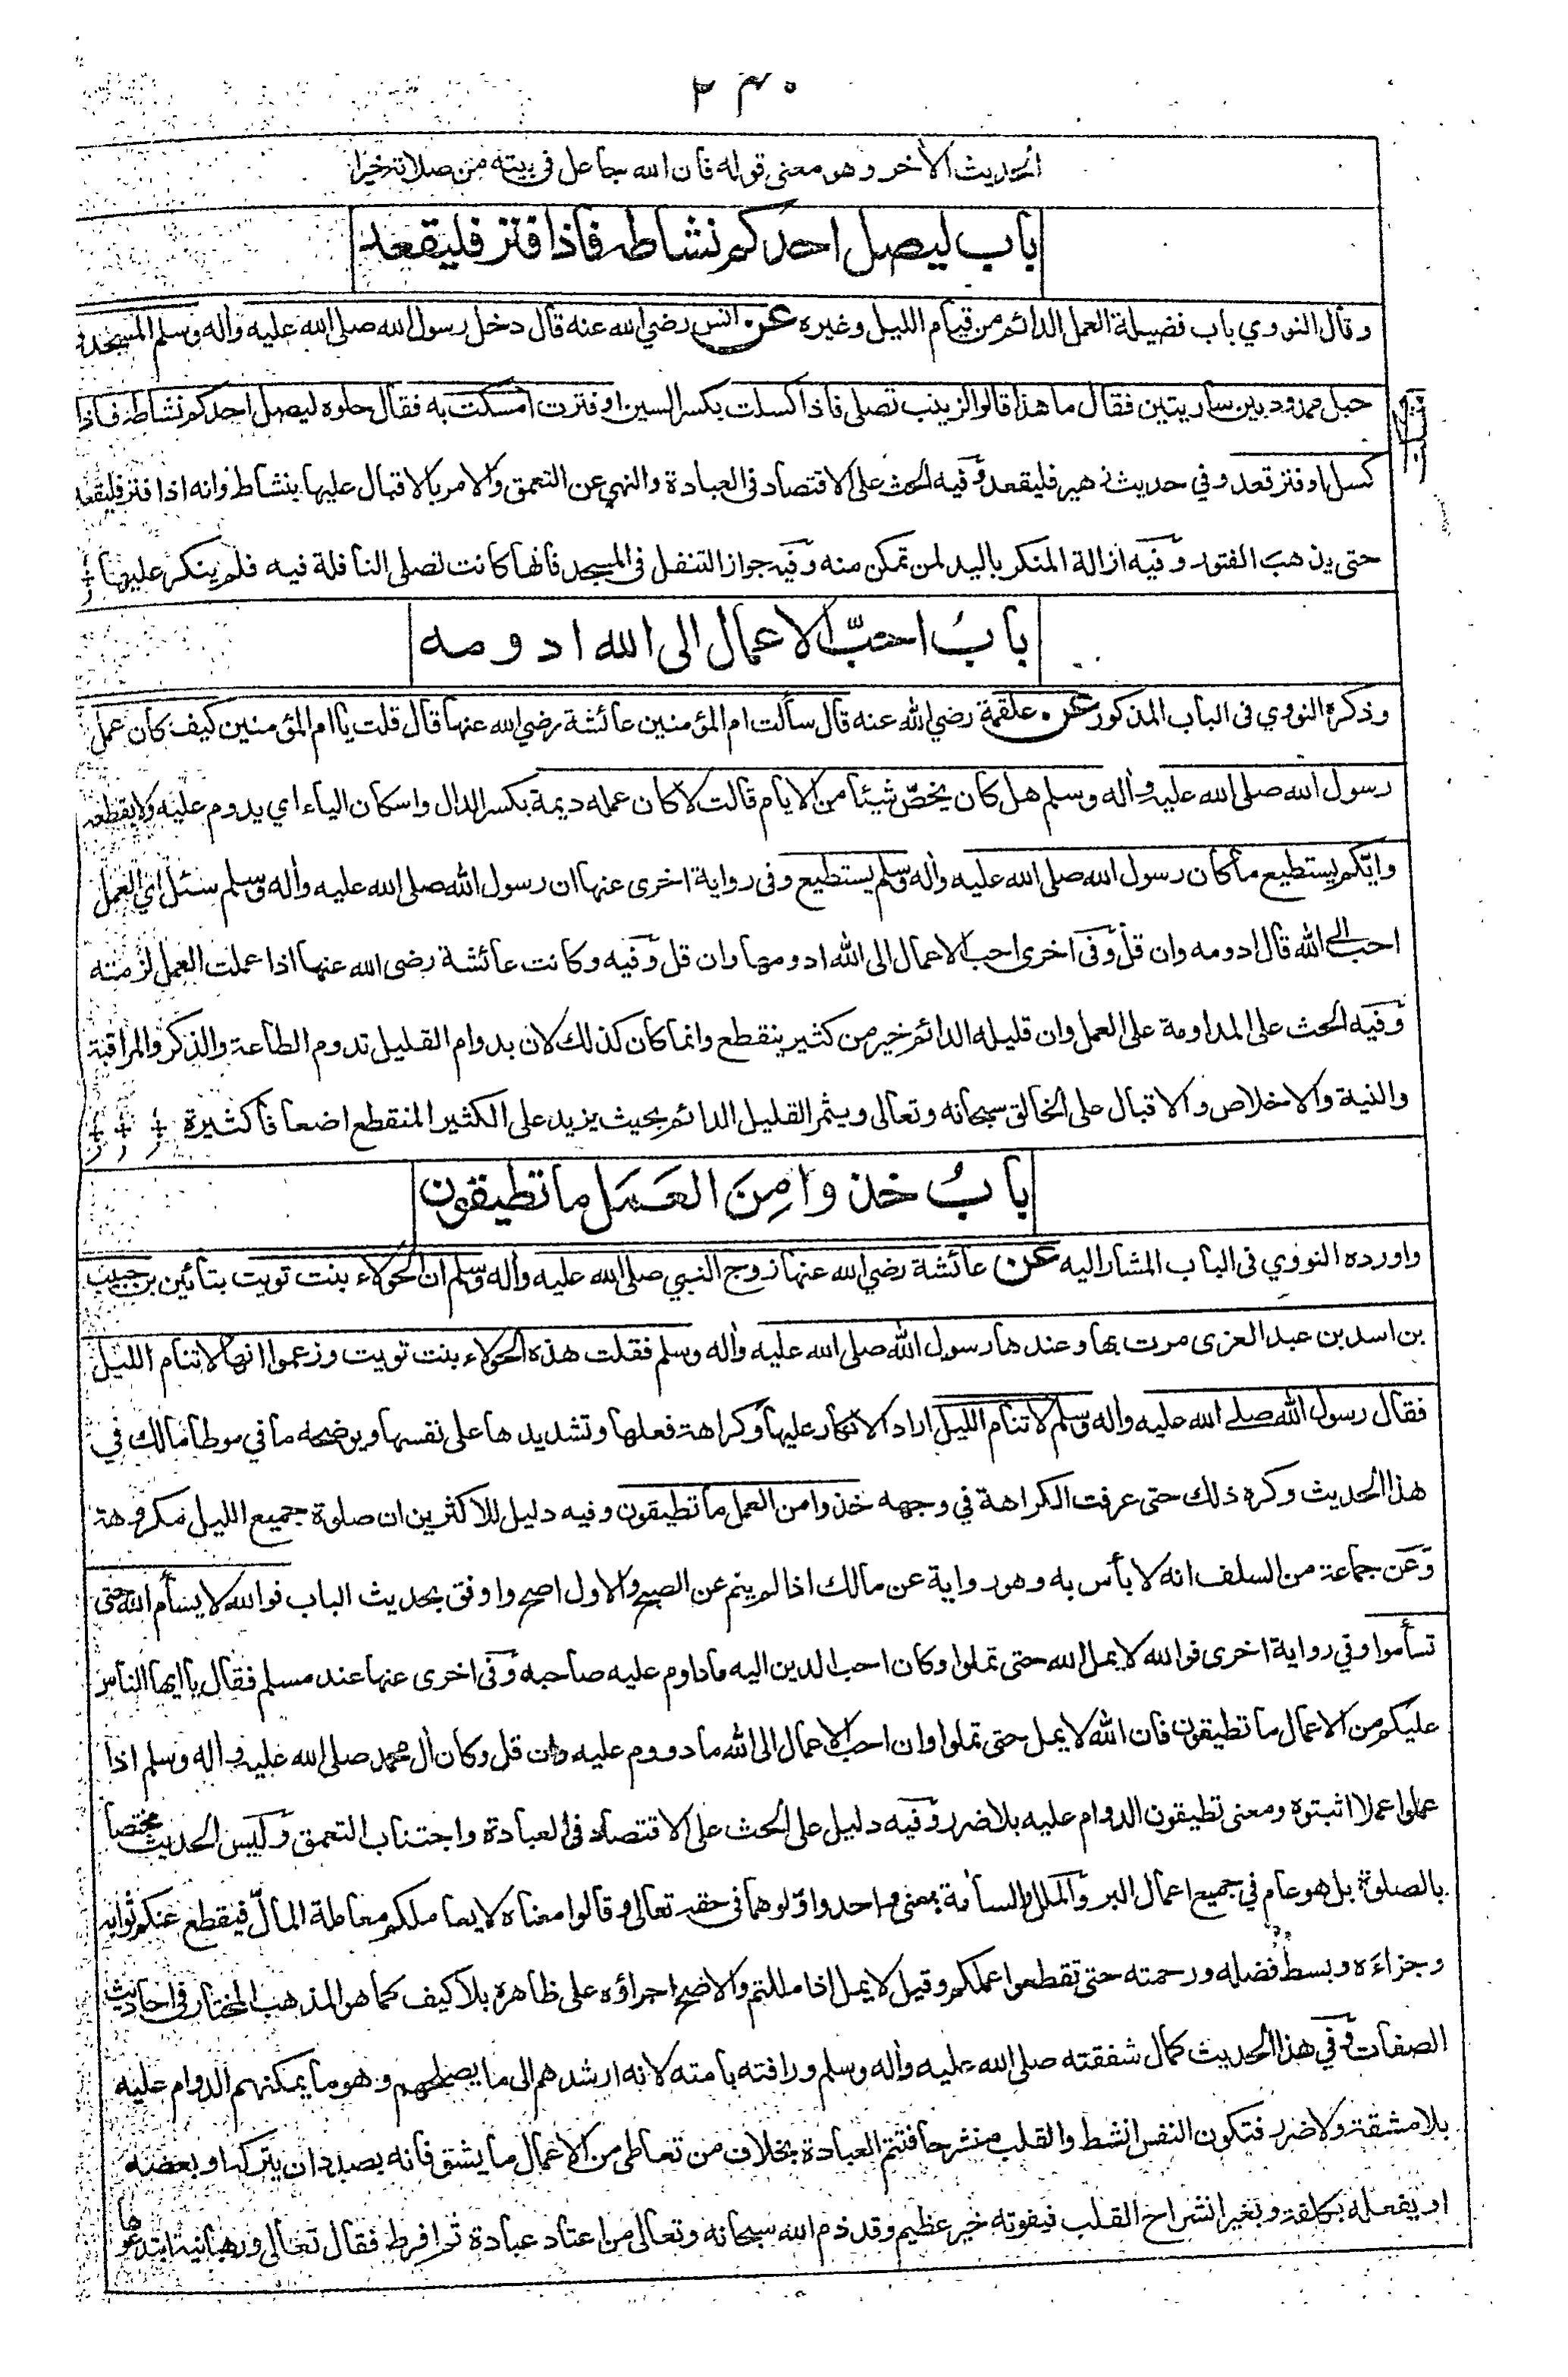 ٢٣٠
الحديث الأخر وهو معنى قوله فان الله جاعل في بيته من صلاته خيرا
باب ليصل احدكم نشاطه فاذا فتر فليقعد
وقال النووي باب فضيلة العمل الدائم من قيام الليل وغيره عن انس رضي الله عنه قال دخل رسول الله صلى الله عليه وأله وسلم المسجد و
حبل ممدود بين ساريتين فقال ما هذا قالوا لزينب تصلي فاذا كسلت بكسر السين او فترت امسكت به فقال حلوه ليصل احدكم نشاطه فاذا
كسل او فتر قعد وفي حديث زهير فليقعد وفيه الحث على الاقتصاد في العبادة والنهي عن التعمق والامر بالاقبال عليها بنشاط وانه اذا فتر فليقعد
حتى يذهب الفتور وفيه ازالة المنكر باليد لمن تمكن منه وفيه جواز التنفل في المسجد فانها كانت تصلي النافلة فيه فلم ينكر عليها
باب احبّ الاعمال الى الله ادومه
وذكره النووي في الباب المذكور عن علقمة رضي الله عنه قال سألت ام المؤمنين عائشة رضي الله عنها قال قلت يا ام المؤمنين كيف كان عمل
رسول الله صلى الله عليه وأله وسلم هل كان يخصّ شيئا من الايام قالت لا كان عمله ديمة بكسر الدال واسكان الياء اي يدوم عليه ولا يقطعه
وايّكم يستطيع ما كان رسول الله صلى الله عليه وأله وسلم يستطيع وفي رواية اخرى عنها ان رسول الله صلى الله عليه وأله وسلم سئل اي العمل
احب الى الله قال ادومه وان قل وفي اخرى احب الاعمال الى الله ادومها وان قل وفيه وكانت عائشة رضي الله عنها اذا عملت العمل لزمته
وفيه الحث على المداومة على العمل وان قليله الدائم خير من كثير ينقطع وانما كان كذلك لان بدوام القليل تدوم الطاعة والذكر والمراقبة
والنية والاخلاص والاقبال على الخالق سبحانه وتعالى ويثمر القليل الدائم بحيث يزيد على الكثير المنقطع اضعافا كثيرة
بابُ خذوا مِنَ العَمَل ما تطيقون
واورده النووي في الباب المشار اليه عن عائشة رضي الله عنها زوج النبي صلى الله عليه وأله وسلم ان الحولاء بنت تويت بتائين بن حبيب
بن اسد بن عبد العزى مرت بها وعندها رسول الله صلى الله عليه وأله وسلم فقلت هذه الحولاء بنت تويت وزعموا انها لا تنام الليل
فقال رسول الله صلى الله عليه وأله وسلم لا تنام الليل اراد الانكار عليها وكراهة فعلها وتشديدها على نفسها ويوضحه ما في موطا مالك في
هذا الحديث وكره ذلك حتى عرفت الكراهة في وجهه خذوا من العمل ما تطيقون وفيه دليل للاكثرين ان صلوة جميع الليل مكروهة
وعن جماعة من السلف انه لا بأس به وهو رواية عن مالك اذا لم ينم عن الصبح والاول اصح واوفق بحديث الباب فوالله لا يسأم الله حتى
تسأموا وفي رواية اخرى فوالله لا يمل الله حتى تملوا وكان احب الدين اليه ما داوم عليه صاحبه وفي اخرى عنها عند مسلم فقال يا ايها الناس
عليكم من الاعمال ما تطيقون فان الله لا يمل حتى تملوا وان احب الاعمال الى الله ما دووم عليه وان قل وكان أل محمد صلى الله عليه وأله وسلم اذا
عملوا عملا اثبتوه ومعنى تطيقون الدوام عليه بلا ضرر وفيه دليل على الحث على الاقتصاد في العبادة واجتناب التعمق وليس الحديث مختصا
بالصلوة بل هو عام في جميع اعمال البر والملل والسأمة بمعنى واحد واوّلوهما في حقه تعالى وقالوا معناه لا يعاملكم معاملة المالّ فيقطع عنكم ثوابه
وجزاءه وبسط فضله ورحمته حتى تقطعوا عملكم وقيل لا يمل اذا مللتم والاصح اجراؤه على ظاهره بلا كيف كما هو المذهب المختار في احاديث
الصفات وفي هذا الحديث كمال شفقته صلى الله عليه وأله وسلم ورافته بامته لانه ارشدهم الى ما يصلحهم وهو ما يمكنهم الدوام عليه
بلا مشقة ولا ضرر فتكون النفس انشط والقلب منشرحا فتتم العبادة بخلاف من تعاطى من الاعمال ما يشق فانه بصدد ان يتركه او بعضه
او يفعله بكلفة وبغير انشراح القلب فيفوته خير عظيم وقد ذم الله سبحانه وتعالى من اعتاد عبادة ثم افرط فقال تعالى ورهبانية ابتدعوها